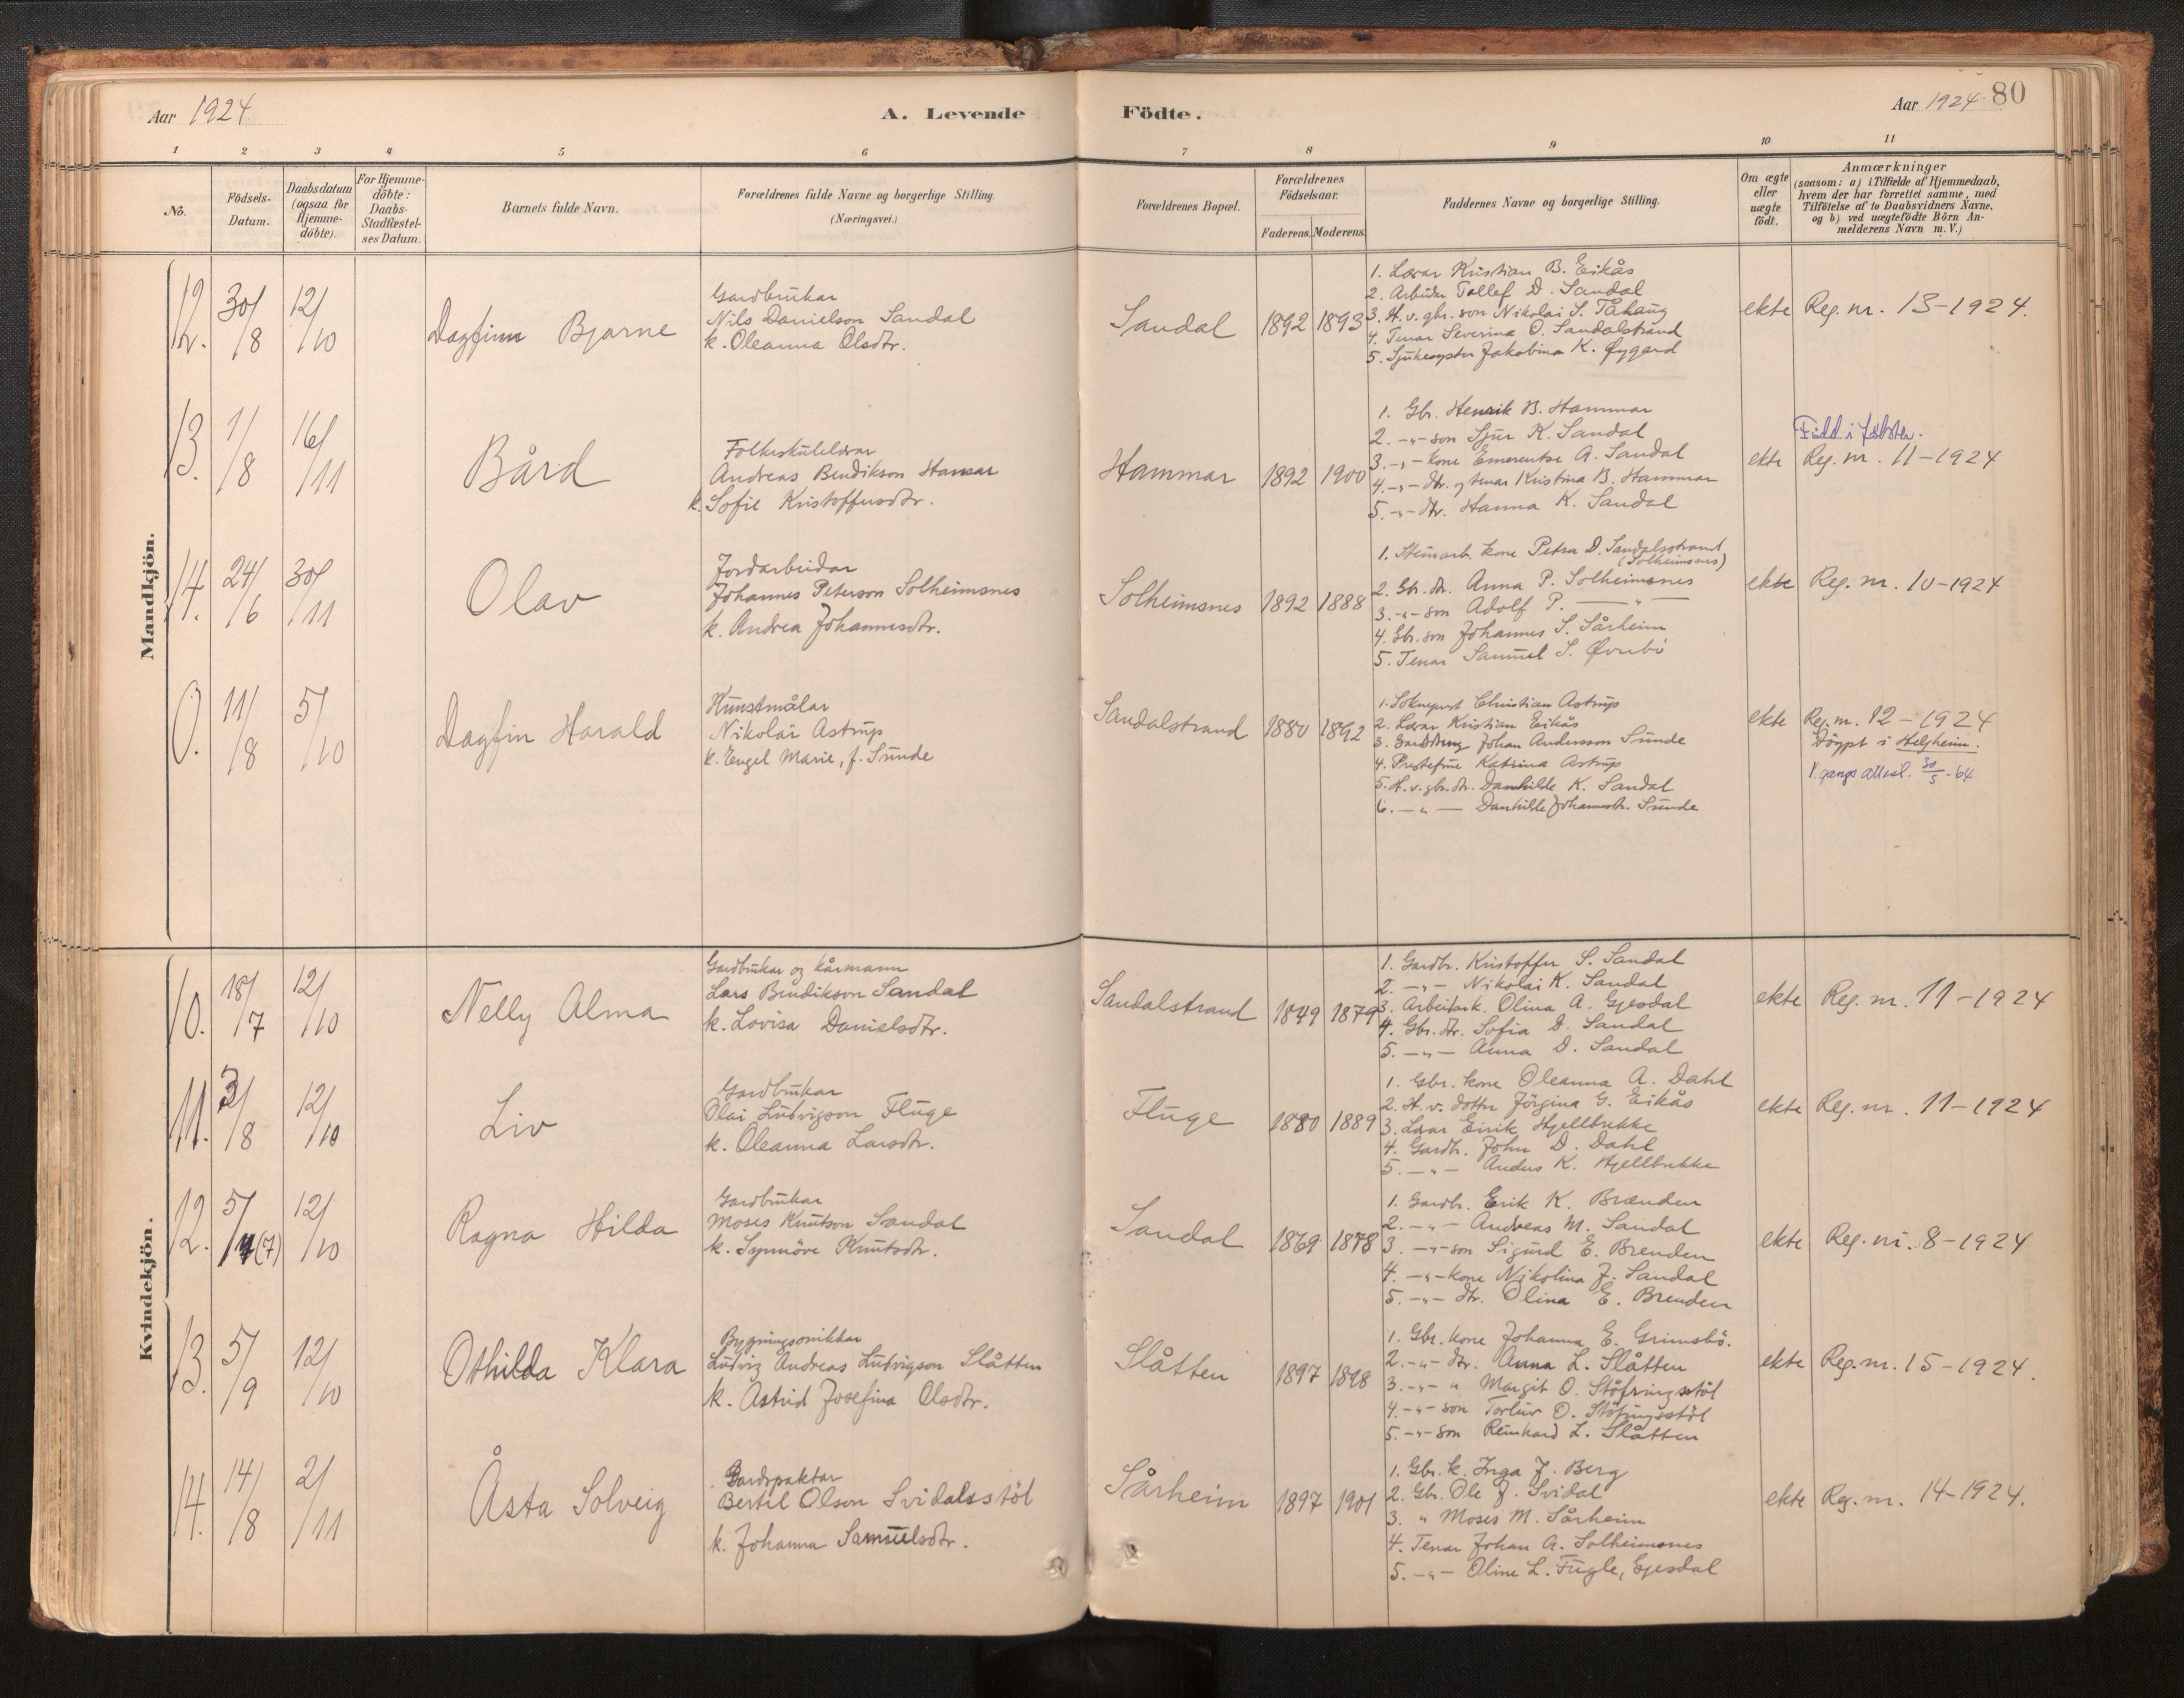 Aar 1924
A. Levende
Födte.
Aar 1924
80
1 2 3 4 5 6 7 8 9 10 11
No.
Födsels-
Datum.
Daabsdatum
(ogsaa for
Hjemme-
döbte).
For Hjemme-
döbte:
Daabs-
Stadfæstel-
ses Datum.
Barnets fulde Navn.
Forældrenes fulde Navne og borgerlige Stilling.
(Næringsvei.)
Forældrenes Bopæl.
Forældrenes
Födselsaar.
Faderens. Moderens.
Faddernes Navne og borgerlige Stilling.
Om ægte
eller
uægte
födt.
Anmærkninger
(saasom: a) i Tilfælde af Hjemmedaab,
hvem der har forrettet samme, med
Tilföielse af to Daabsvidners Navne,
og b) ved uægtefödte Börn An-
melderens Navn m. V.)
Mandkjön.
12. 30/8 12/10
Dagfinn Bjarne
Gardbrukar
Nils Danielson Sandal
k. Oleanna Olsdtr.
Sandal
1892 1893
1. Lærar Kristian B. Eikås
2. Arbeidar Tollef D. Sandal
3. H. v. gbr. son Nikolai S. Tåhaug
4. Tenar Severina O. Sandalstrand
5. Sjukesyster Jakobina K. Øygard
ekte
Reg. nr. 13-1924.
13. 1/8 16/11
Bård
Folkeskulelærar
Andreas Bendikson Hamar
k. Sofie Kristoffersdtr.
Hammar
1892 1900
1. Gbr. Henrik B. Hammar
2. -"- son Sjur K. Sandal
3. -"- kone Emerentse A. Sandal
4. -"- dtr. og tenar Kristina B. Hammar
5. -"- dtr. Hanna K. Sandal
ekte
Född i Jølster.
Reg. nr. 11-1924
14. 24/6 30/11
Olav
Jordarbeidar
Johannes Peterson Solheimsnes
k. Andrea Johannesdtr.
Solheimsnes
1892 1888
1. Steinarb. kone Petra D. Sandalsstrand
(Solheimsnes)
2. Gbr. dtr. Anna P. Solheimsnes
3. -"- son Adolf P. — " —
4. Gbr. son Johannes S. Sårheim
5. Tenar Samuel S. Øvrebö
ekte
Reg. nr. 10-1924
0. 11/8 5/10
Dagfin Harald
Kunstmålar
Nikolai Astrup
k. Engel Marie, f. Sunde
Sandalstrand
1880 1892
1. Sokneprest Christian Astrup
2. Lærar Kristian Eikås
3. Johan Andersson Sunde
4. Prestefrue Katrina Astrup
5. H. v. gbr. dtr. Danhilde K. Sandal
6. — " — Danhilde Johannesdtr. Sunde
ekte
Reg. nr. 12-1924
Döypt i Helgheim.
1. gangs attest. 30/5-64
Kvindekjön.
10. 18/7 12/10
Nelly Alma
Gardbrukar og kårmann
Lars Bendikson Sandal
k. Lovisa Danielsdtr.
Sandalstrand
1849 1879
1. Gardbr. Kristoffer S. Sandal
2. -"- Nikolai K. Sandal
3. Arbeidark. Olina A. Gjesdal
4. Gbr. dtr. Sofia D. Sandal
5. -"- Anna D. Sandal
ekte
Reg. nr. 11-1924
11. 3/8 12/10
Liv
Gardbrukar
Olai Ludvigson Fluge
k. Oleanna Larsdtr.
Fluge
1880 1889
1. Gbr. kone Oleanna A. Dahl
2. H. v. dotter Jörgina G. Eikås
3. Lærar Eirik Hjellbrekke
4. Gardbr. John D. Dahl
5. -"- Anders K. Hjellbrekke
ekte
Reg. nr. 11-1924
12. 5/7 (7) 12/10
Ragna Hilda
Gardbrukar
Moses Knutson Sandal
k. Synnöve Knutsdtr.
Sandal
1869 1878
1. Gardbr. Erik K. Brænden
2. -"- Andreas M. Sandal
3. -"- son Sigurd E. Brenden
4. -"- kone Nikolina J. Sandal
5. -"- dtr. Olina E. Brenden
ekte
Reg. nr. 8-1924
13. 5/9 12/10
Othilda Klara
Bygningssnikkar
Ludvig Andreas Ludvigson Slåtten
k. Astrid Josefina Olsdtr.
Slåtten
1897 1898
1. Gbr. kone Johanna E. Grimsbö.
2. -"- dtr. Anna L. Slåtten
3. -"- " Margit O. Stöfringsstöl
4. -"- son Torleiv O. Stöfringsstöl
5. -"- son Reinhard L. Slåtten
ekte
Reg. nr. 15-1924.
14. 14/8 2/11
Åsta Solveig
Gardspaktar
Bertil Olson Svidalsstöl
k. Johanna Samuelsdtr.
Sårheim
1897 1901
1. Gbr. k. Inga J. Berg
2. Gbr. Ole J. Svidal
3. " Moses M. Sårheim
4. Tenar Johan A. Solheimsnes
5. -"- Oline L. Fugle, Gjesdal
ekte
Reg. nr. 14-1924.